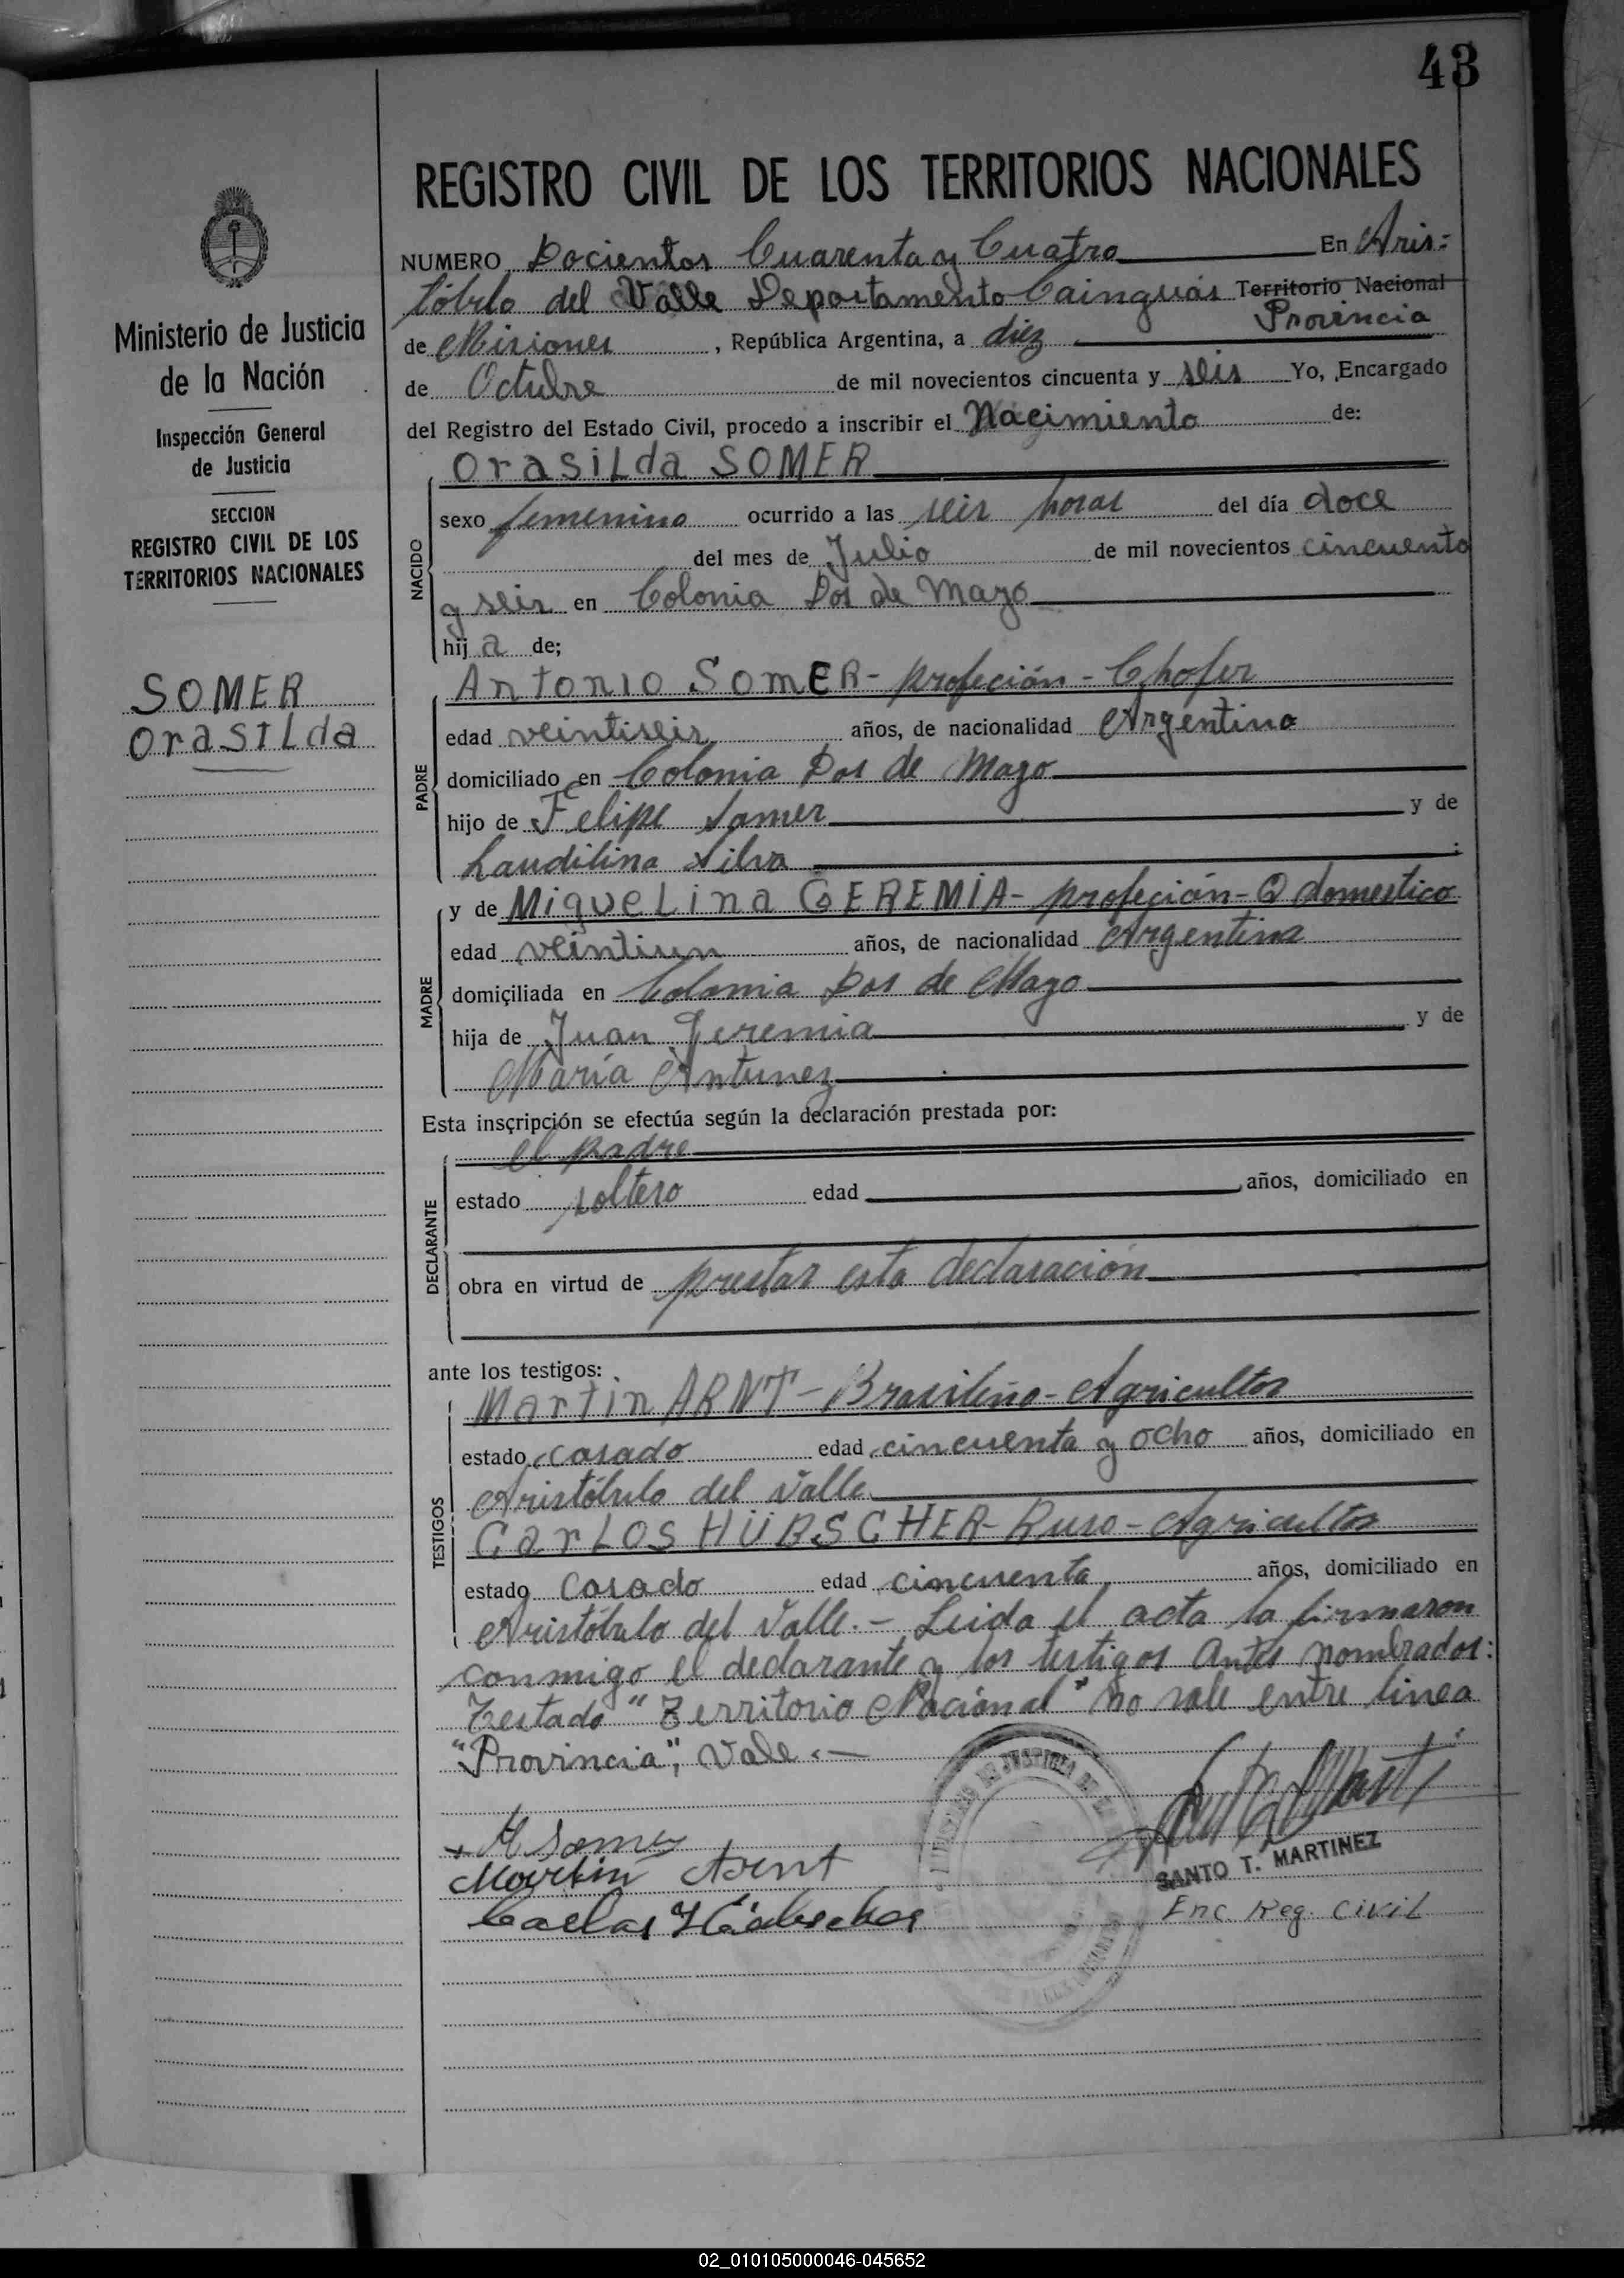 43
REGISTRO CIVIL DE LOS TERRITORIOS NACIONALES
NUMERO Docientos Cuarenta y Cuatro En Aris=
tóbulo del Valle Departamento Cainguás Territorio Nacional
Provincia
de Misiones, República Argentina, a diez
de Octubre de mil novecientos cincuenta y seis Yo, Encargado
del Registro del Estado Civil, procedo a inscribir el Nacimiento de:
Orasilda SOMER
NACIDO
sexo femenino ocurrido a las seis horas del día doce
del mes de Julio de mil novecientos cincuenta
y seis en Colonia Dos de Mayo
hij a de;
PADRE
Antonio SOMER - profeción - Chofer
edad veintiseis años, de nacionalidad Argentina
domiciliado en Colonia Dos de Mayo
hijo de Felipe Somer y de
Laudilina Silva ;
MADRE
y de Miquelina GEREMIA - profeción - Q domestico
edad veintiun años, de nacionalidad Argentina
domiciliada en Colonia Dos de Mayo
hija de Juan Geremia y de
María Antunez
Esta inscripción se efectúa según la declaración prestada por:
DECLARANTE
el padre
estado soltero edad años, domiciliado en
obra en virtud de prestar esta declaración
ante los testigos:
TESTIGOS
Martin ARNT - Brasileño - Agricultor
estado casado edad cincuenta y ocho años, domiciliado en
Aristóbulo del Valle
Carlos HÜBSCHER - Ruso - Agricultor
estado casado edad cincuenta años, domiciliado en
Aristóbulo del Valle. - Leida el acta la firmaron
conmigo el declarante y los testigos antes nombrados:
Testado "Territorio Nacional" no vale entre linea
"Provincia", Vale. —
A Somer
Martin Arent
Carlos Hübscher
SANTO T. MARTINEZ
Enc Reg. Civil
Ministerio de Justicia
de la Nación
Inspección General
de Justicia
SECCION
REGISTRO CIVIL DE LOS
TERRITORIOS NACIONALES
SOMER
Orasilda
02_010105000046-045652